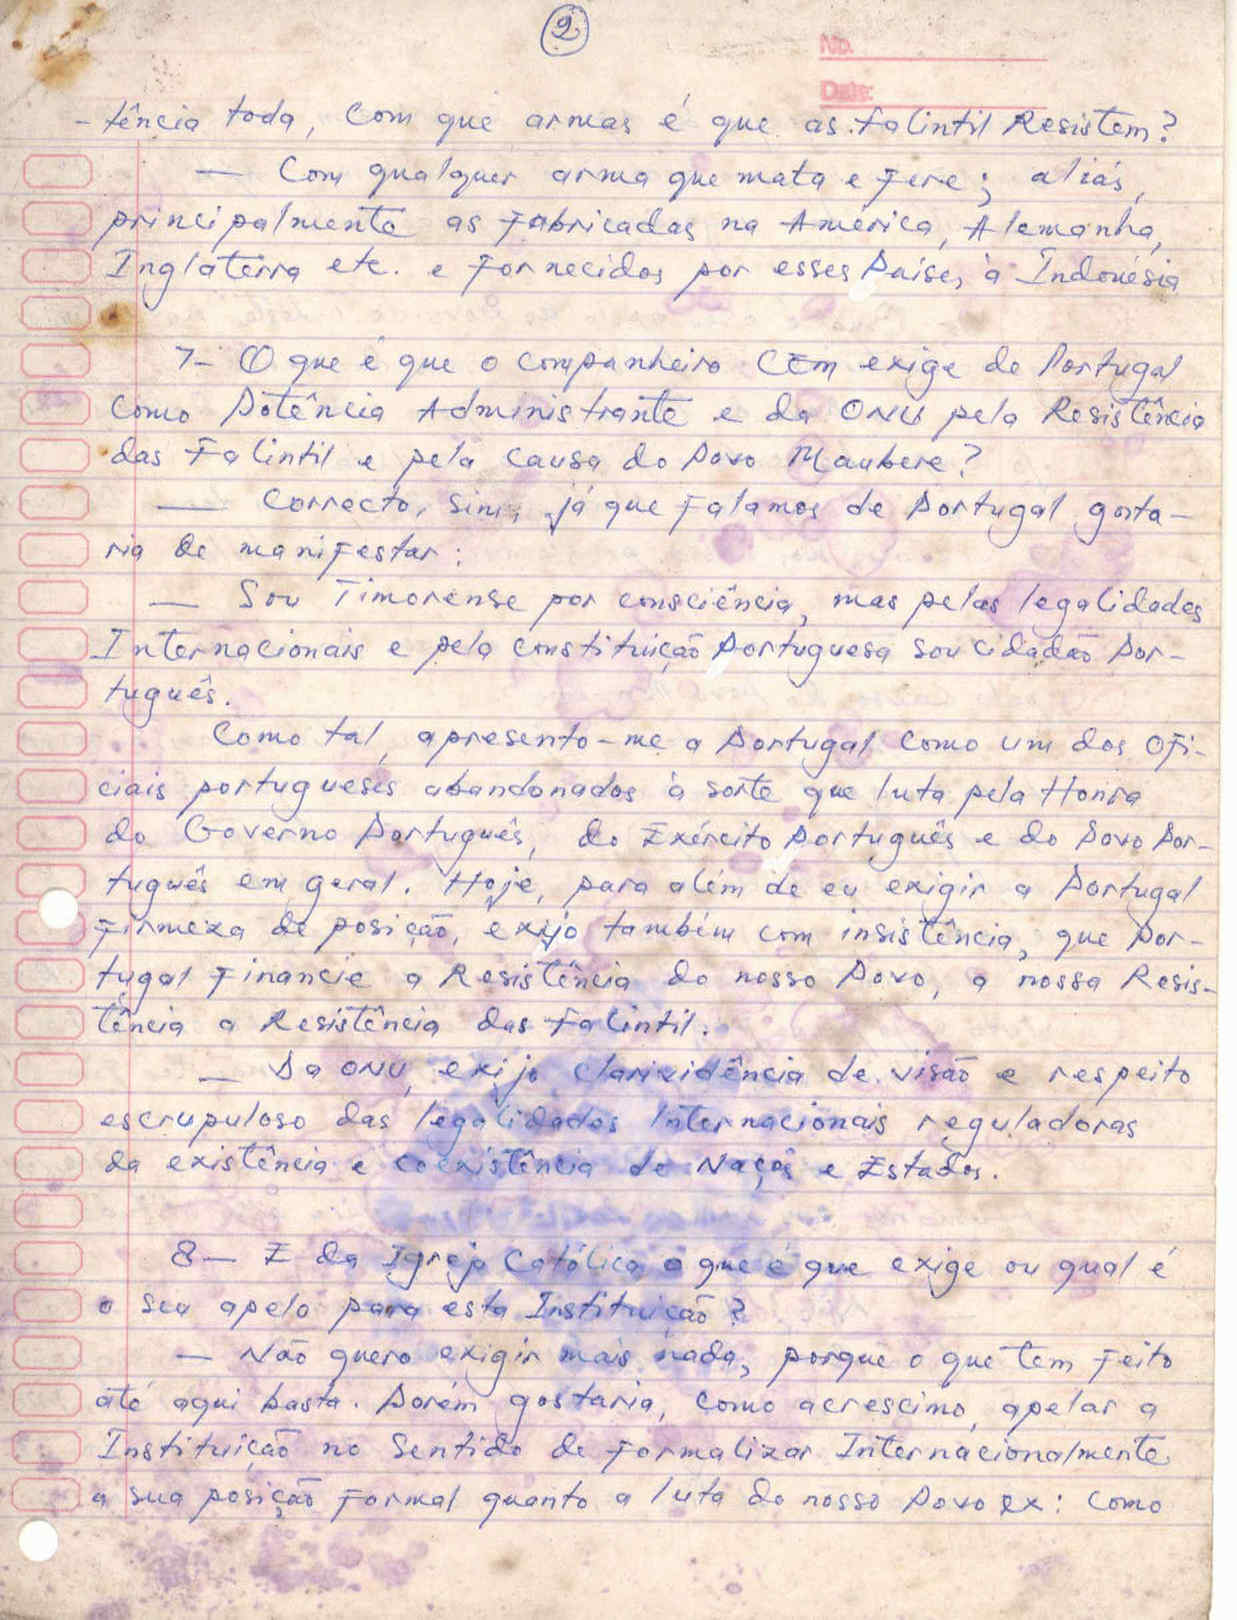 2
No.
Date:
-tência toda, com que armas é que as Falintil Resistem?
— Com qualquer arma que mata e fere; aliás,
principalmente as fabricadas na América, Alemanha,
Inglaterra etc. e fornecidos por esses Países à Indonésia
7- O que é que o companheiro CEM exige de Portugal
como Potência Administrante e da ONU pela Resistência
das Falintil e pela causa do Povo Maubere?
— Correcto, sim, já que falamos de Portugal gosta-
ria de manifestar:
— Sou Timorense por consciência, mas pelas legalidades
Internacionais e pela constituição Portuguesa sou cidadão Por-
tuguês.
Como tal, apresento-me a Portugal como um dos Ofi-
ciais portugueses abandonados à sorte que luta pela Honra
do Governo Português, do Exército Português e do Povo Por-
tuguês em geral. Hoje, para além de eu exigir a Portugal
firmeza de posição, exijo também com insistência, que Por-
tugal Financie a Resistência do nosso Povo, a nossa Resis-
tência a Resistência das Falintil.
— Da ONU, exijo clarividência de visão e respeito
escrupuloso das legalidades Internacionais reguladoras
da existência e coexistência de Nações e Estados.
8— E da Igreja Católica o que é que exige ou qual é
o seu apelo para esta Instituição?
— Não quero exigir mais nada, porque o que tem feito
até aqui basta. Porém gostaria, como acrescimo, apelar a
Instituição no Sentido de formalizar Internacionalmente
a sua posição formal quanto a luta do nosso Povo ex: como